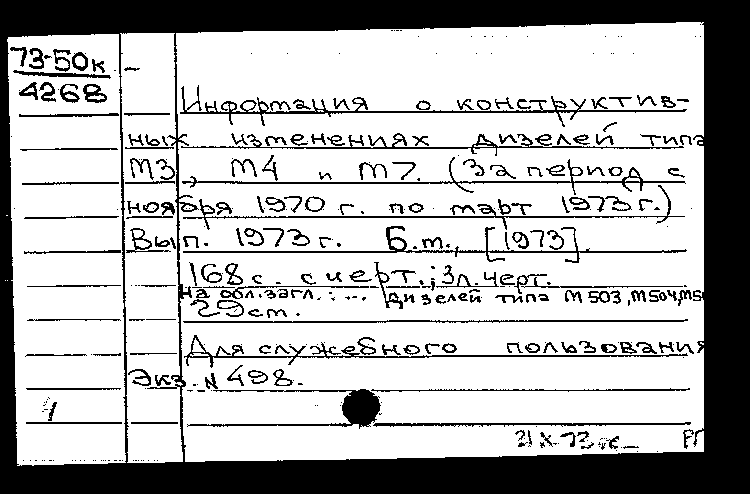 73-50к
4268
Информация о конструктив-
ных изменениях дизелей типа
М3, М4 и М7. (За период с
ноября 1970 г. по март 1973 г.)
Вып. 1973 г. Б.м., [1973].
168 с. с черт.; 3 л. черт.
На обл. загл.: ... дизелей типа М 503, М 504, М50
29 см.
Для служебного пользования
Экз. № 498.
4
21 X-73
РГ